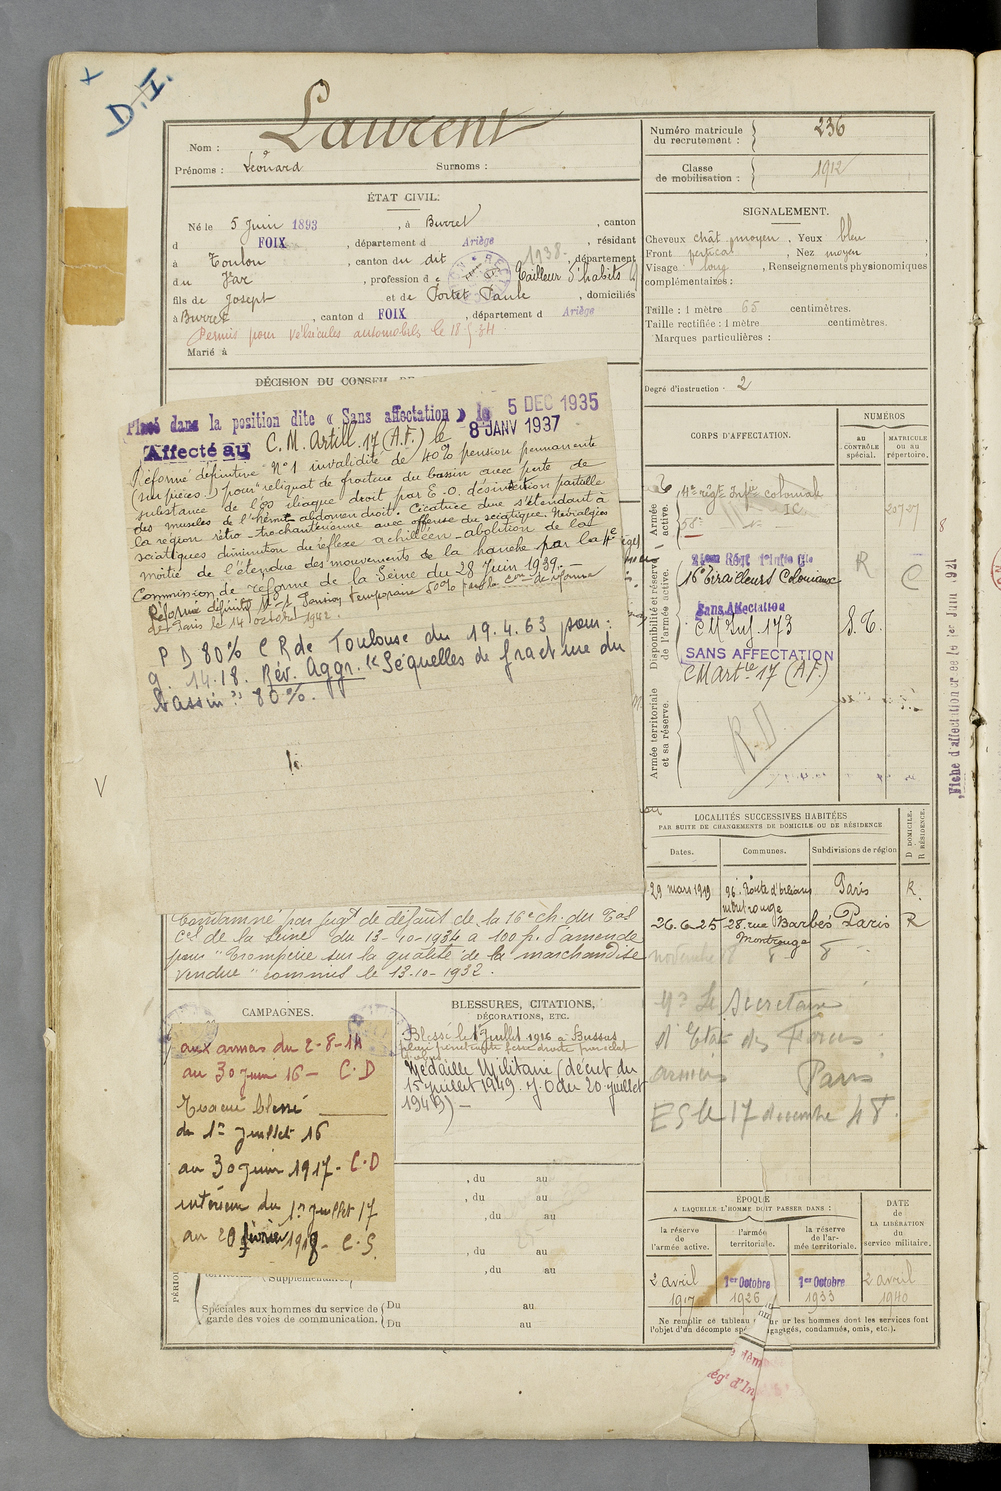 D.I.
Laurent
Nom :
Prénoms : Léonard Surnoms :
ÉTAT CIVIL.
Né le 5 Juin 1893, à Burret, canton
d FOIX, département d Ariège, résidant
à Toulon, canton du dit, département
du Var, profession de Tailleur d'habits
fils de Joseph et de Portet Paule, domiciliés
à Burret, canton d FOIX, département d Ariège
1938
Permis pour véhicules automobiles le
Marié à
DÉCISION DU CONSEIL DE
Placé dans la position dite « Sans affectation » le 5 DEC 1935
Affecté au C. M. Artill. 17 (A.F.) le 8 JANV 1937
Réformé définitive N°1 invalidité de 40% pension permanente
(sur pièces) pour "reliquat de fracture du bassin avec perte de
substance de l'os iliaque droit par E.O. désinsertion partielle
des muscles de l'hémi-abdomen droit. Cicatrice dure s'étendant à
la région rétro-trochantérienne avec offense du sciatique. Névralgies
sciatiques diminution du réflexe achilléen - abolition de la
moitié de l'étendue des mouvements de la hanche par la 4e
Commission de réforme de la Seine du 28 Juin 1939.-
Réformé définitif N°1 Pension temporaire 50% par la Con de réforme
de Paris le 14 octobre 1942.
P D 80% C R de Toulouse du 19.4.63 pour :
g. 14.18. Rév. Aggr. "Séquelles de fracture du
bassin" 80%.
Condamné par jugt de défaut de la 16e ch. du Tal
Cel de la Seine du 13-10-1934 à 100 f. d'amende
pour "Tromperie sur la qualité de la marchandise
vendue" commis le 13-10-1932.
CAMPAGNES.
aux armées du 2-8-14
au 30 juin 16 - C.D
Evacué blessé
du 1er juillet 16
au 30 juin 1917 - C.D
intérieur du 1er juillet 17
au 20 février 1918 - C.S.
BLESSURES, CITATIONS,
DÉCORATIONS, ETC.
Blessé le 1er Juillet 1916 à Bussus
plaie pénétrante fesse droite par éclat
d'obus.
Médaille Militaire (décret du
15 juillet 1949. J.O du 20 juillet
1949) -
, du au
, du au
, du au
, du au
, du au
(Supplémentaires)
Spéciales aux hommes du service de Du au
garde des voies de communication. Du au
Numéro matricule
du recrutement : 236
Classe
de mobilisation : 1912
SIGNALEMENT.
Cheveux chât. moyen, Yeux bleu
Front vertical, Nez moyen
Visage long, Renseignements physionomiques
complémentaires :
Taille : 1 mètre 65 centimètres.
Taille rectifiée : 1 mètre centimètres.
Marques particulières :
Degré d'instruction : 2
CORPS D'AFFECTATION.
NUMÉROS
AU CONTRÔLE spécial.
MATRICULE ou au répertoire.
Armée active.
4e régt Infie coloniale
58e
Disponibilité et réserve de l'armée active.
16e Tirailleurs Coloniaux
Sans Affectation
C M Inf 173 S. T.
SANS AFFECTATION
C M Artie 17 (A.F.)
Armée territoriale et sa réserve.
R.D.
Fiche d'affectation créée le 1er Juin 1921
LOCALITÉS SUCCESSIVES HABITÉES
PAR SUITE DE CHANGEMENTS DE DOMICILE OU DE RÉSIDENCE
D DOMICILE.
R RÉSIDENCE.
Dates. Communes. Subdivisions de région
29 mars 1919 96, Route d'Orléans Paris R.
Montrouge
26.6.25 28, rue Barbès Paris R
Montrouge
Mr Le Secrétaire
d'Etat des Forces
armées Paris
ES le 17 décembre 48.
ÉPOQUE
A LAQUELLE L'HOMME DOIT PASSER DANS :
DATE
de
LA LIBÉRATION
du
service militaire.
la réserve de l'armée active.
l'armée territoriale.
la réserve de l'armée territoriale.
2 avril 1er Octobre 1er Octobre 2 avril
1917 1926 1933 1940
Ne remplir ce tableau
l'objet d'un décompte